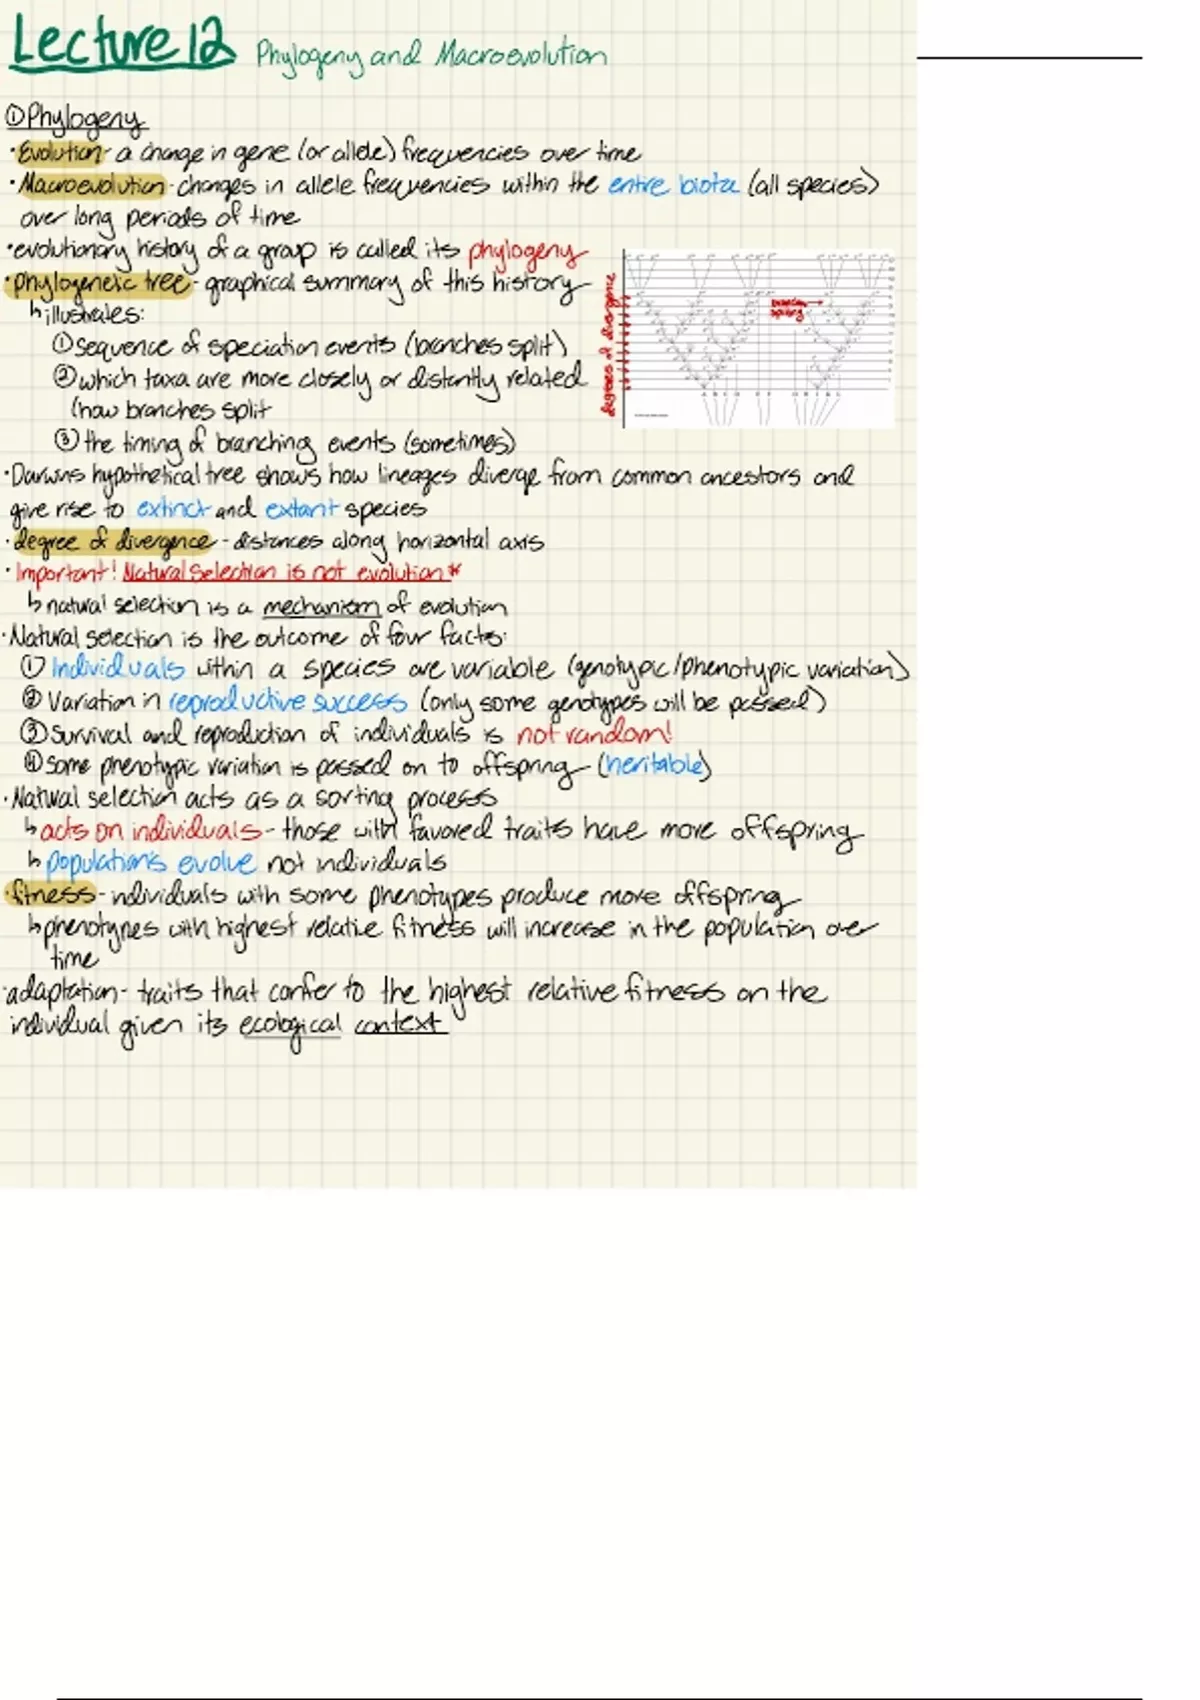 Lecture 12 Phylogeny and Macroevolution
① Phylogeny
• Evolution - a change in gene (or allele) frequencies over time
• Macroevolution - changes in allele frequencies within the entire biota (all species)
over long periods of time
• evolutionary history of a group is called its phylogeny
• phylogenetic tree - graphical summary of this history
↳ illustrates:
① sequence of speciation events (branches split)
② which taxa are more closely or distantly related
(how branches split
③ the timing of branching events (sometimes)
degrees of divergence
branches splitting
• Darwins hypothetical tree shows how lineages diverge from common ancestors and
give rise to extinct and extant species
• degree of divergence - distances along horizontal axis
• Important! Natural Selection is not evolution*
↳ natural selection is a mechanism of evolution
• Natural selection is the outcome of four facts:
① Individuals within a species are variable (genotypic/phenotypic variation)
② Variation in reproductive success (only some genotypes will be passed)
③ Survival and reproduction of individuals is not random!
④ some phenotypic variation is passed on to offspring (heritable)
• Natural selection acts as a sorting process
↳ acts on individuals - those with favored traits have more offspring
↳ populations evolve not individuals
• fitness - individuals with some phenotypes produce more offspring
↳ phenotypes with highest relative fitness will increase in the population over
time
• adaptation - traits that confer to the highest relative fitness on the
individual given its ecological context